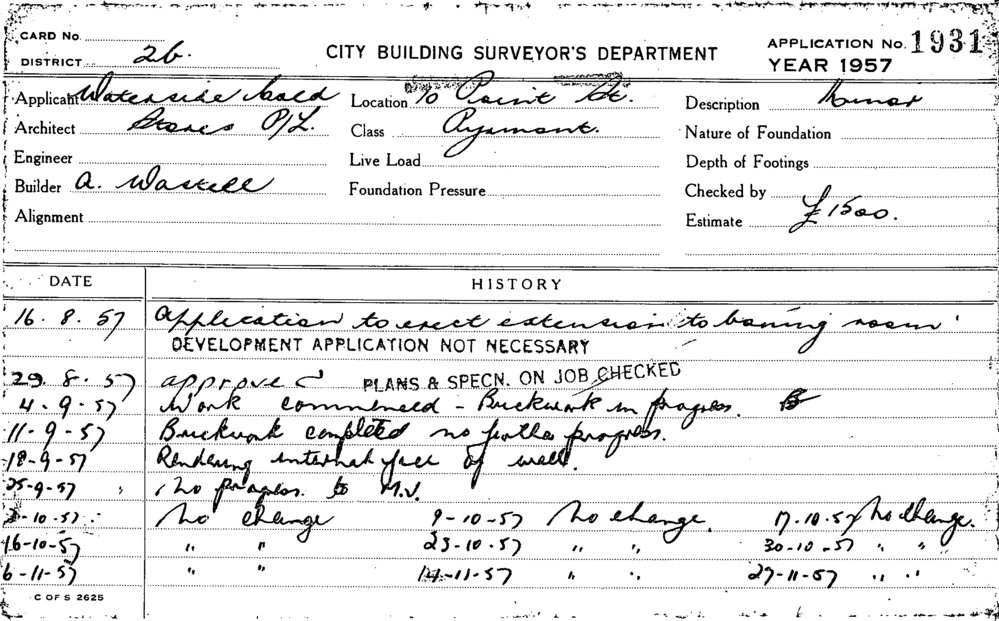 CARD No.
DISTRICT 26.
CITY BUILDING SURVEYOR'S DEPARTMENT
APPLICATION No. 1931
YEAR 1957
Applicant Waterside Cold
Location 10 Point St.
Description Minor
Architect Stores P/L.
Class Pyrmont.
Nature of Foundation
Engineer
Live Load
Depth of Footings
Builder A. Waskell
Foundation Pressure
Checked by
Alignment
Estimate £1500.
DATE HISTORY
16. 8. 57 Application to erect extension to boning room
DEVELOPMENT APPLICATION NOT NECESSARY
29. 8. 57 approved PLANS & SPECN. ON JOB CHECKED
4-9-57 Work commenced - Brickwork in progress.
11-9-57 Brickwork completed no further progress.
18-9-57 Rendering internal face of wall.
25-9-57 No progress. to M.V.
2-10-57 No change 9-10-57 No change. 17-10-57 No change.
16-10-57 " " 23-10-57 " " 30-10-57 " "
6-11-57 " " 14-11-57 " " 27-11-57 " "
C OF S 2625